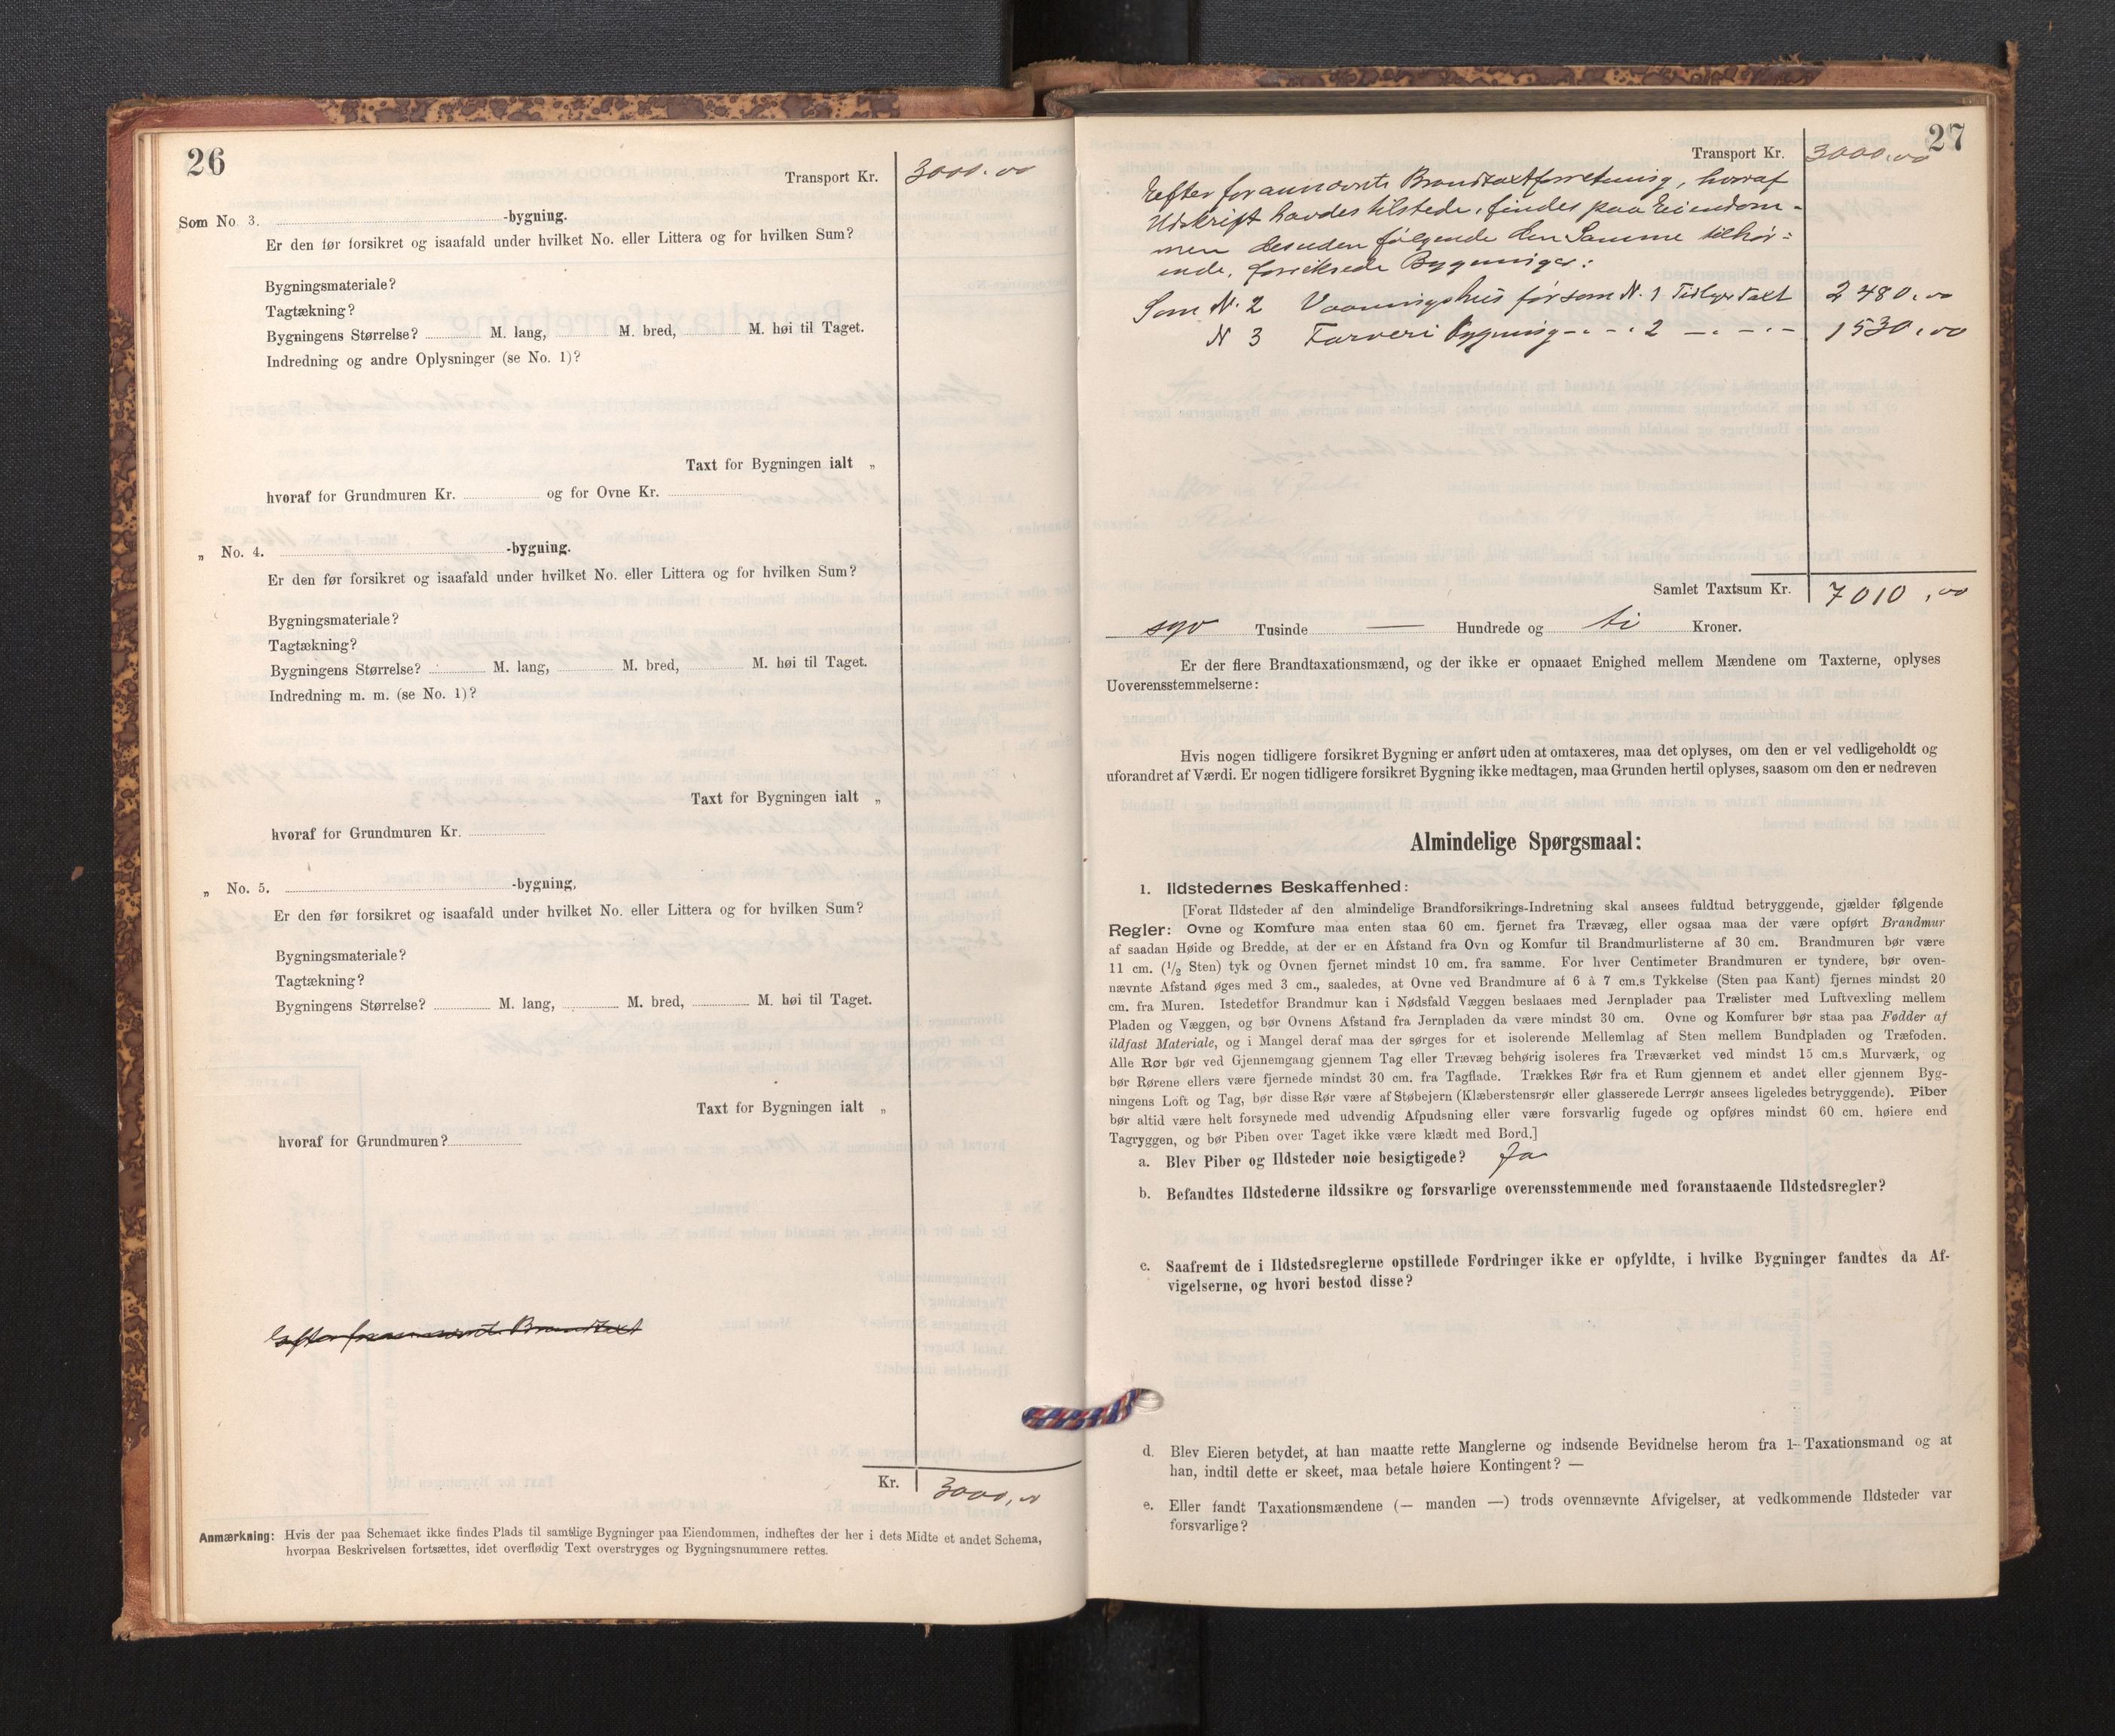 26
Transport Kr. 3000.00
Som No. 3. -bygning.
Er den før forsikret og isaafald under hvilket No. eller Littera og for hvilken Sum?
Bygningsmateriale?
Tagtækning?
Bygningens Størrelse? M. lang, M. bred, M. høi til Taget.
Indredning og andre Oplysninger (se No. 1)?
Taxt for Bygningen ialt „
hvoraf for Grundmuren Kr. og for Ovne Kr.
„ No. 4. -bygning.
Er den før forsikret og isaafald under hvilket No. eller Littera og for hvilken Sum?
Bygningsmateriale?
Tagtækning?
Bygningens Størrelse? M. lang, M. bred, M. høi til Taget.
Indredning m. m. (se No. 1)?
Taxt for Bygningen ialt „
hvoraf for Grundmuren Kr.
„ No. 5. -bygning,
Er den før forsikret og isaafald under hvilket No. eller Littera og for hvilken Sum?
Bygningsmateriale?
Tagtækning?
Bygningens Størrelse? M. lang, M. bred, M. høi til Taget.
Taxt for Bygningen ialt „
hvoraf for Grundmuren?
Efter forannævnte Brandtaxt
Kr. 3000,00
Anmærkning: Hvis der paa Schemaet ikke findes Plads til samtlige Bygninger paa Eiendommen, indheftes der her i dets Midte et andet Schema,
hvorpaa Beskrivelsen fortsættes, idet overflødig Text overstryges og Bygningsnummere rettes.
27
Transport Kr. 3000,00
Efter forannævnte Brandtaxtforretning, hvoraf
Udskrift havdes tilstede, findes paa Eiendom-
men desuden følgende den Samme tilhør=
ende, forsikrede Bygninger:
Som N. 2 Vaaningshus før som N. 1 Tidligere Taxt 2480,00
N 3 Farveri Bygning -. - . 2 -. - . - 1530,00
Samlet Taxtsum Kr. 7010,00
syv Tusinde — Hundrede og ti Kroner.
Er der flere Brandtaxationsmænd, og der ikke er opnaaet Enighed mellem Mændene om Taxterne, oplyses
Uoverensstemmelserne:
Hvis nogen tidligere forsikret Bygning er anført uden at omtaxeres, maa det oplyses, om den er vel vedligeholdt og
uforandret af Værdi. Er nogen tidligere forsikret Bygning ikke medtagen, maa Grunden hertil oplyses, saasom om den er nedreven
Almindelige Spørgsmaal:
1. Ildstedernes Beskaffenhed:
[Forat Ildsteder af den almindelige Brandforsikrings-Indretning skal ansees fuldtud betryggende, gjælder følgende
Regler: Ovne og Komfure maa enten staa 60 cm. fjernet fra Trævæg, eller ogsaa maa der være opført Brandmur
af saadan Høide og Bredde, at der er en Afstand fra Ovn og Komfur til Brandmurlisterne af 30 cm. Brandmuren bør være
11 cm. (1/2 Sten) tyk og Ovnen fjernet mindst 10 cm. fra samme. For hver Centimeter Brandmuren er tyndere, bør oven-
nævnte Afstand øges med 3 cm., saaledes, at Ovne ved Brandmure af 6 à 7 cm.s Tykkelse (Sten paa Kant) fjernes mindst 20
cm. fra Muren. Istedetfor Brandmur kan i Nødsfald Væggen beslaaes med Jernplader paa Trælister med Luftvexling mellem
Pladen og Væggen, og bør Ovnens Afstand fra Jernpladen da være mindst 30 cm. Ovne og Komfurer bør staa paa Fødder af
ildfast Materiale, og i Mangel deraf maa der sørges for et isolerende Mellemlag af Sten mellem Bundpladen og Træfoden.
Alle Rør bør ved Gjennemgang gjennem Tag eller Trævæg behørig isoleres fra Træværket ved mindst 15 cm.s Murværk, og
bør Rørene ellers være fjernede mindst 30 cm. fra Tagflade. Trækkes Rør fra et Rum gjennem et andet eller gjennem Byg-
ningens Loft og Tag, bør disse Rør være af Støbejern (Klæberstensrør eller glasserede Lerrør ansees ligeledes betryggende). Piber
bør altid være helt forsynede med udvendig Afpudsning eller være forsvarlig fugede og opføres mindst 60 cm. høiere end
Tagryggen, og bør Piben over Taget ikke være klædt med Bord.]
a. Blev Piber og Ildsteder nøie besigtigede? Ja
b. Befandtes Ildstederne ildssikre og forsvarlige overensstemmende med foranstaaende Ildstedsregler?
c. Saafremt de i Ildstedsreglerne opstillede Fordringer ikke er opfyldte, i hvilke Bygninger fandtes da Af-
vigelserne, og hvori bestod disse?
d. Blev Eieren betydet, at han maatte rette Manglerne og indsende Bevidnelse herom fra 1 Taxationsmand og at
han, indtil dette er skeet, maa betale høiere Kontingent? —
e. Eller fandt Taxationsmændene (— manden —) trods ovennævnte Afvigelser, at vedkommende Ildsteder var
forsvarlige?